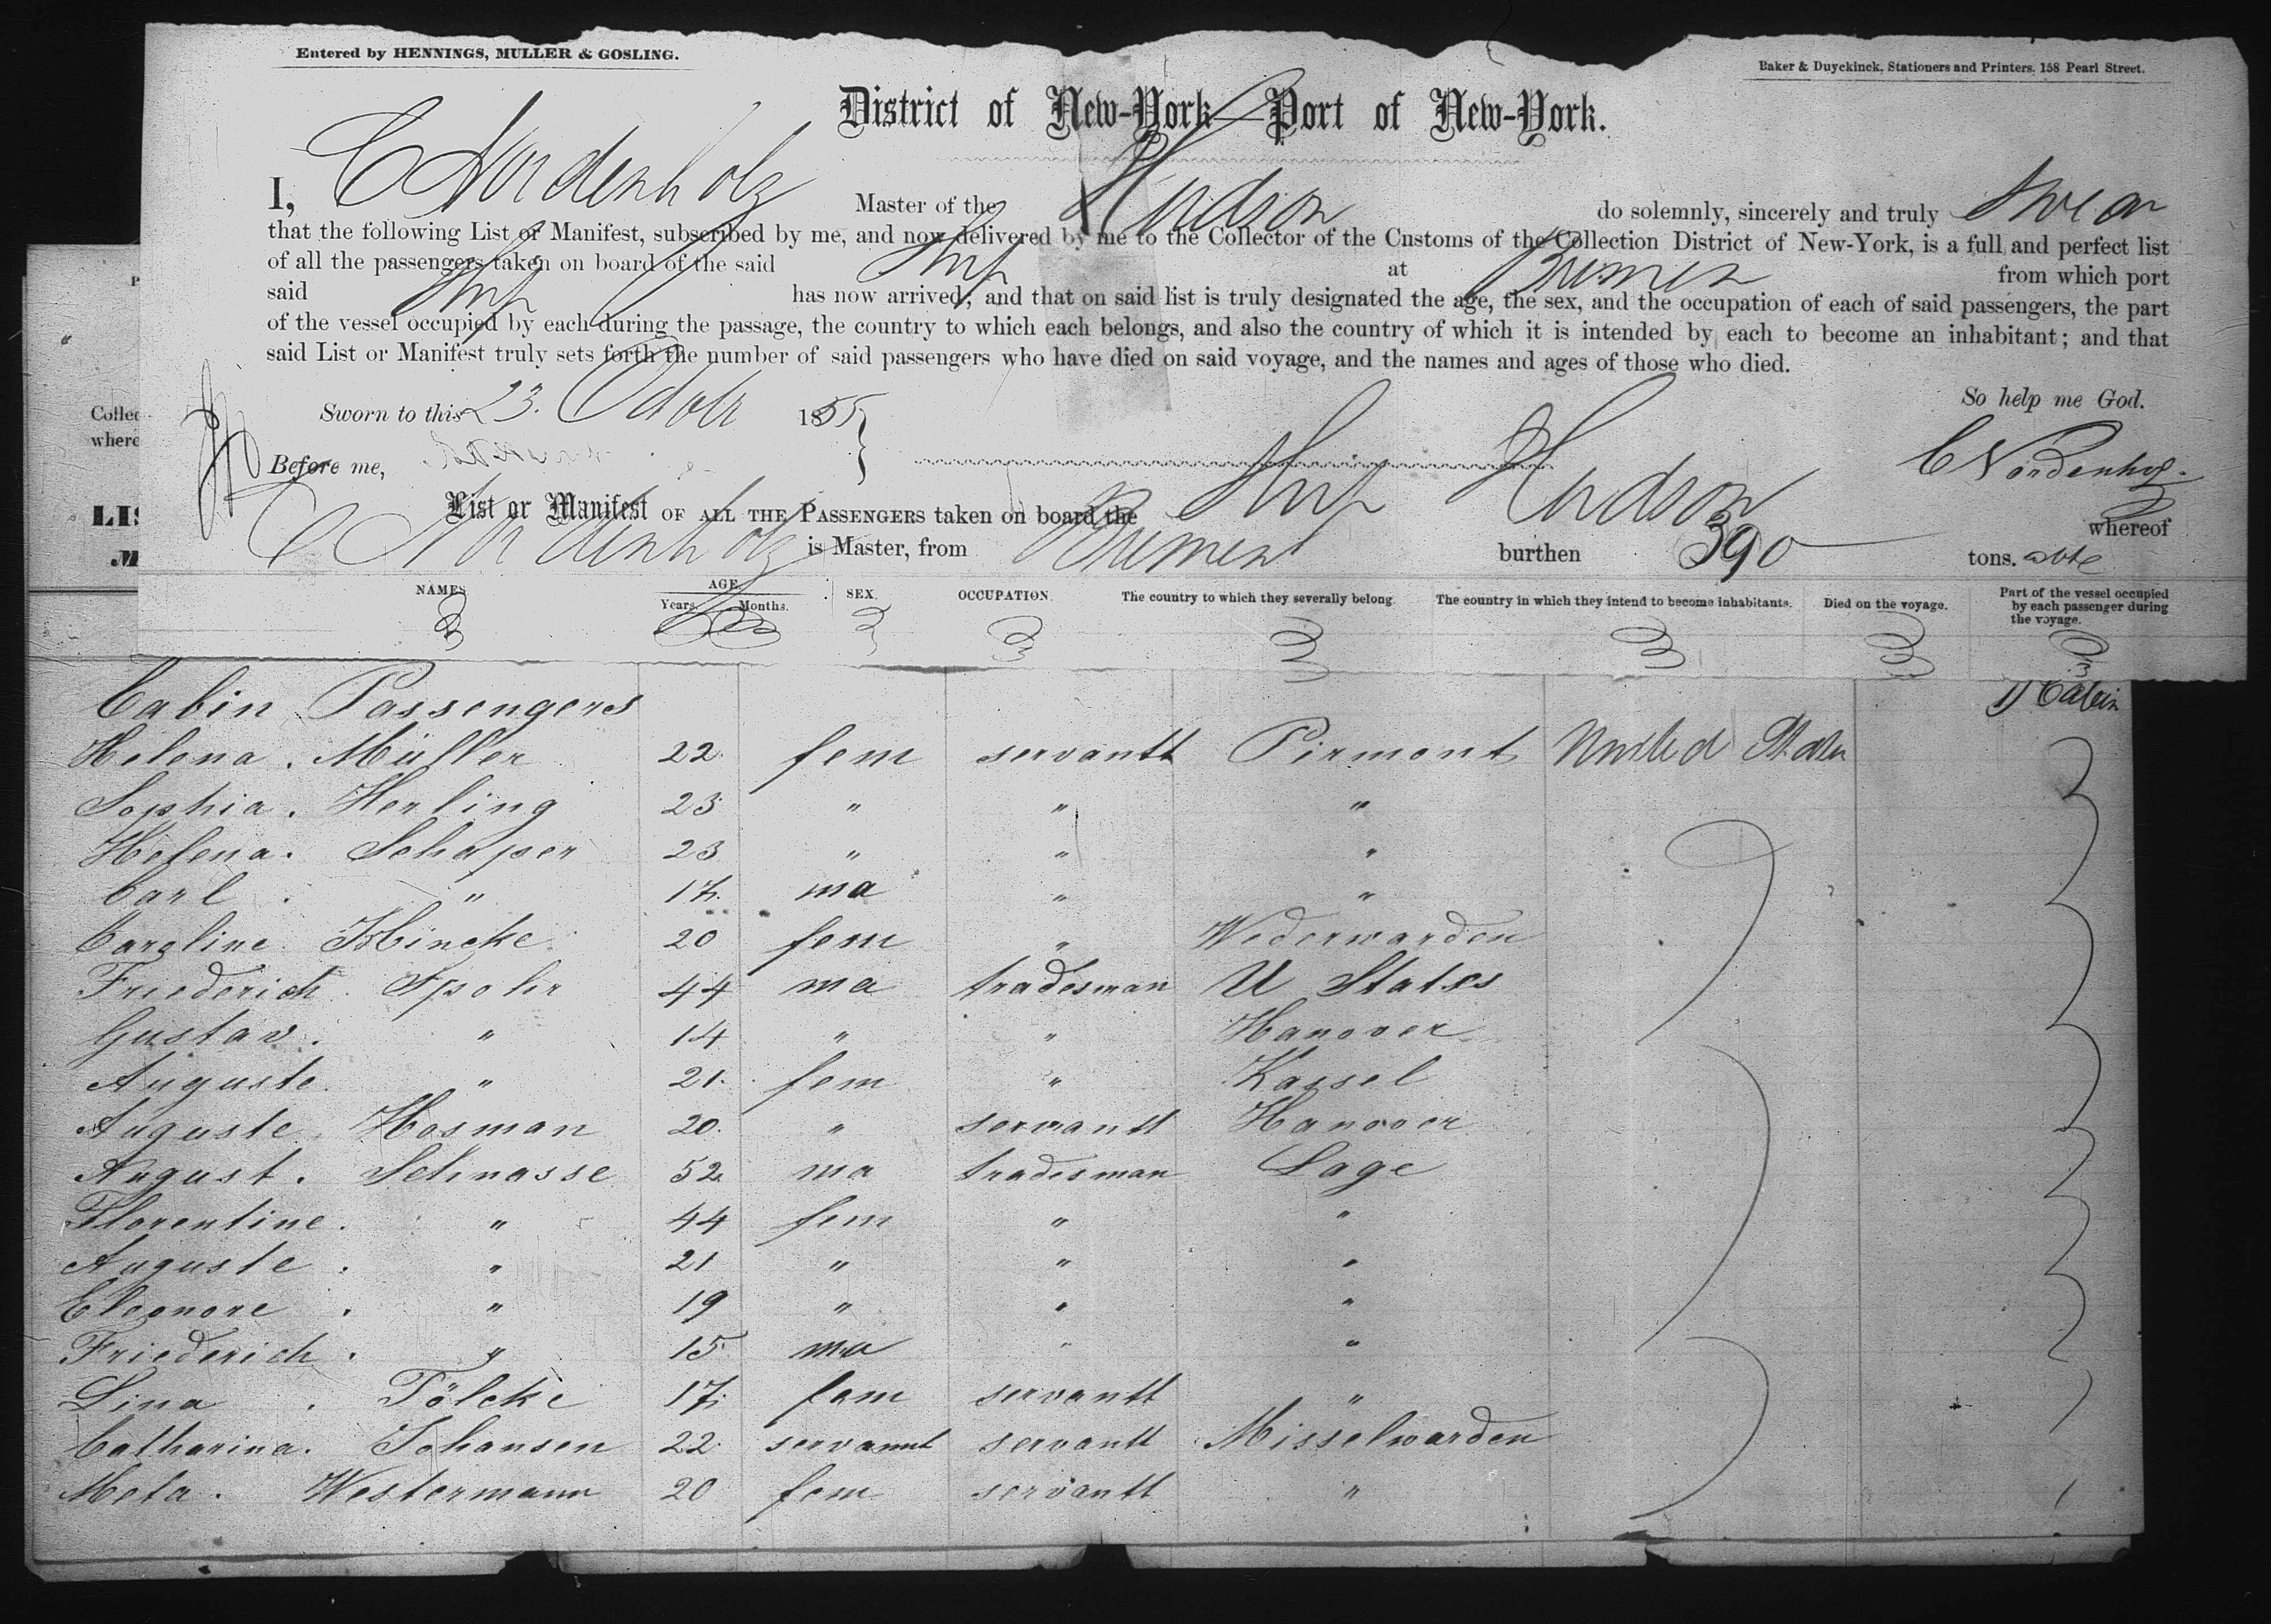 Entered by HENNINGS, MULLER & GOSLING.
Baker & Duyckinck, Stationers and Printers, 158 Pearl Street.
District of New-York—Port of New-York.
I, C Nordenholz Master of the Hudson do solemnly, sincerely and truly swear
that the following List or Manifest, subscribed by me, and now delivered by me to the Collector of the Customs of the Collection District of New-York, is a full and perfect list
of all the passengers taken on board of the said Ship at Bremen from which port
said Ship has now arrived; and that on said list is truly designated the age, the sex, and the occupation of each of said passengers, the part
of the vessel occupied by each during the passage, the country to which each belongs, and also the country of which it is intended by each to become an inhabitant; and that
said List or Manifest truly sets forth the number of said passengers who have died on said voyage, and the names and ages of those who died.
So help me God.
Sworn to this 23. Octobr 1855
C Nordenholz
Before me,
List or Manifest OF ALL THE PASSENGERS taken on board the Ship Hudson whereof
C Nordenholz is Master, from Bremen burthen 390 tons.
NAMES AGE Years. Months. SEX. OCCUPATION. The country to which they severally belong. The country in which they intend to become inhabitants. Died on the voyage. Part of the vessel occupied by each passenger during the voyage.
Cabin Passengers Cabin
Helena. Müller 22. fem servantt Pirmont United States
Sophia. Herling 23 " " "
Helena. Schaper 23 " " "
Carl. " 17. ma " "
Caroline. Hincke 20 fem " Wederwarden
Friederich. Spohr 44 ma tradesman U States
Gustav. " 14 " " Hanover
Auguste. " 21. fem " Kassel
Auguste. Hosman 20. " servantt Hanover
August. Schnasse 52 ma tradesman Lage
Florentine. " 44 fem " "
Auguste. " 21 " " "
Eleonore. " 19 " " "
Friederich. " 15 ma " "
Lina. Tölcke 17. fem servantt "
Catharina. Johansen 22. servannt servantt Misselwarden
Meta. Westermann 20 fem servantt "